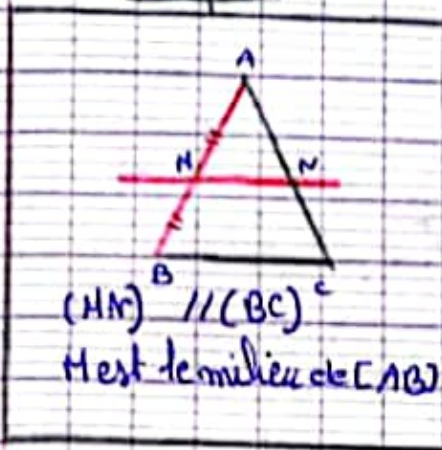 A
M N
B C
(MN) // (BC)
M est le milieu de [AB]